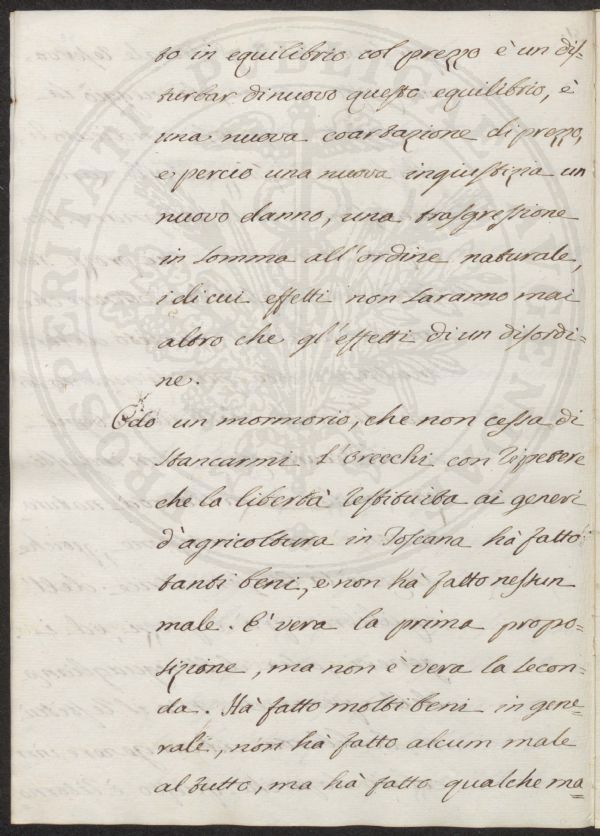 to in equilibrio col prezzo è un dis-
turbar di nuovo questo equilibrio, è
una nuova coartazione di prezzo,
e perciò una nuova inquistizia un
nuovo danno, una trasgressione
in somma all'ordine naturale,
i di cui effetti non saranno mai
altro che gl'effetti di un disordi=
ne.
Odo un mormorio, che non cessa di
stancarmi l'orecchi con ripetere
che la libertà restituita ai generi
d'agricoltura in Toscana hà fatto
tanti beni, e non hà fatto nessun
male. E' vera la prima propo=
sizione, ma non è vera la secon=
da. Hà fatto molti beni in gene=
rale, non hà fatto alcum male
al tutto, ma hà fatto qualche ma=
PROSPERITATI PUBLICAE AUGENDA